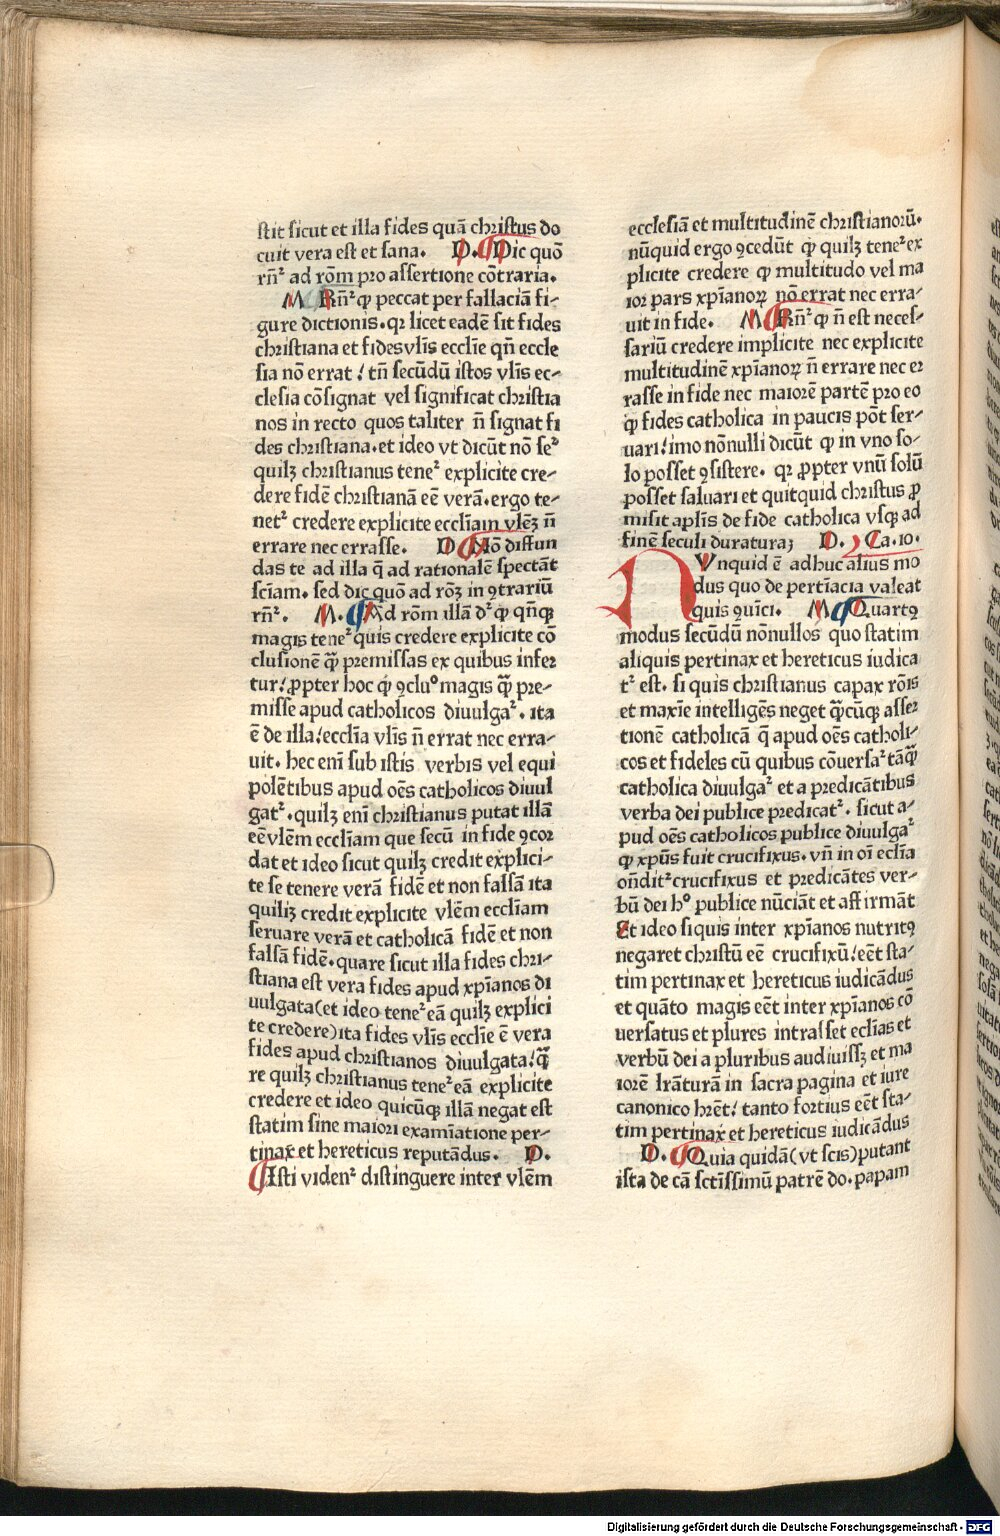 ſtit ſicut et illa fides quā chriſtus do
cuit vera eſt et ſana. D. Dic quō
rn̄ꝛ ad rōm pro aſſertione cōtraria.
M Rn̄ꝛ ꝙ peccat per fallaciā fi⸗
gure dictionis. qꝛ licet eadē ſit fides
chriſtiana et fides vlīs eccl̄ie qn̄ eccle
ſia nō errat / tn̄ ſecūdū iſtos vlīs ec⸗
cleſia cōſignat vel ſignificat chriſtia
nos in recto quos taliter n̄ ſignat fi
des chriſtiana. et ideo vt dicūt nō ſeꝛ
quilꝫ chriſtianus teneꝛ explicite cre⸗
dere fidē chriſtianā eē verā. ergo te⸗
netꝛ credere explicite eccl̄iam vlēꝫ n̄
errare nec erraſſe. D. Nō diffun
das te ad illa q̄ ad rationalē ſpectāt
ſc̄iam. ſed dic quō ad rōꝫ in ꝯtrariū
rn̄ꝛ. M. Ad rōm illā dꝛ ꝙ qn̄qꝫ
magis teneꝛ quis credere explicite cō
cluſionē q̄ꝫ premiſſas ex quibus infer
tur / ꝓpter hoc ꝙ ꝯcluº magis q̄ꝫ pre⸗
miſſe apud catholicos diuulgaꝛ. ita
ē de illa / eccl̄ia vlīs n̄ errat nec erra⸗
uit. hec enī ſub iſtis verbis vel equi
polētibus apud oēs catholicos diuul
gatꝛ. quilꝫ enī chriſtianus putat illā
eē vlēm eccl̄iam que ſecū in fide ꝯcor
dat et ideo ſicut quilꝫ credit explici⸗
te ſe tenere verā fidē et non falſā ita
quilꝫ credit explicite vlēm eccl̄iam
ſeruare verā et catholicā fidē et non
falſā fidē. quare ſicut illa fides chri⸗
ſtiana eſt vera fides apud xp̄ianos di
uulgata (et ideo teneꝛ eā quilꝫ explici
te credere) ita fides vlīs eccl̄ie ē vera
fides apud chriſtianos diuulgata / q̄ꝫ
re quilꝫ chriſtianus teneꝛ eā explicite
credere et ideo quicūqꝫ illā negat eſt
ſtatim ſine maiori examīatione per⸗
tinax et hereticus reputādus. D.
Iſti videnꝛ diſtinguere inter vlēm
eccleſiā et multitudinē chriſtianorū.
nūquid ergo ꝯcedūt ꝙ quilꝫ teneꝛ ex
plicite credere ꝙ multitudo vel ma
ior pars xp̄ianoꝝ nō errat nec erra⸗
uit in fide. M. Rn̄ꝛ ꝙ n̄ eſt neceſ⸗
ſariū credere implicite nec explicite
multitudinē xp̄ianoꝝ n̄ errare nec er
raſſe in fide nec maiorē partē pro eo
ꝙ fides catholica in paucis pōt ſer⸗
uari / imo nōnulli dicūt ꝙ in vno ſo⸗
lo poſſet ꝯſiſtere. qꝛ ꝓpter vnū ſolū
poſſet ſaluari et quitquid chriſtus ꝓ
miſit apl̄is de fide catholica vſqꝫ ad
finē ſeculi duraturaꝫ D. Ca. 10.
NVnquid ē adhuc alius mo
dus quo de pertīacia valeat
quis ꝯuīci. M. Quartꝯ
modus ſecūdū nōnullos quo ſtatim
aliquis pertinax et hereticus iudica
tꝛ eſt. ſi quis chriſtianus capax rōis
et maxīe intelligēs neget q̄ꝫcūqꝫ aſſer
tionē catholicā q̄ apud oēs catholi⸗
cos et fideles cū quibus cōuerſaꝛ tāq̄ꝫ
catholica diuulgaꝛ et a predicātibus
verba dei publice predicatꝛ. ſicut a⸗
pud oēs catholicos publice diuulgaꝛ
ꝙ xp̄us fuit crucifixus. vn̄ in oī ecl̄ia
on̄ditꝛ crucifixus et predicātes ver⸗
bū dei hº publice nūciāt et affirmāt
Et ideo ſi quis inter xp̄ianos nutritꝯ
negaret chriſtū eē crucifixū / eēt ſta⸗
tim pertinax et hereticus iudicādus
et quāto magis eēt inter xp̄ianos cō
uerſatus et plures intraſſet ecl̄ias et
verbū dei a pluribus audiuiſſꝫ et ma
iorē lr̄aturā in ſacra pagina et iure
canonico hrēt / tanto fortius eēt ſta⸗
tim pertinax et hereticus iudicādus
D. Quia quidā (vt ſcis) putant
iſta de cā ſctīſſimū patrē do. papam
Digitalisierung gefördert durch die Deutsche Forschungsgemeinschaft - DFG